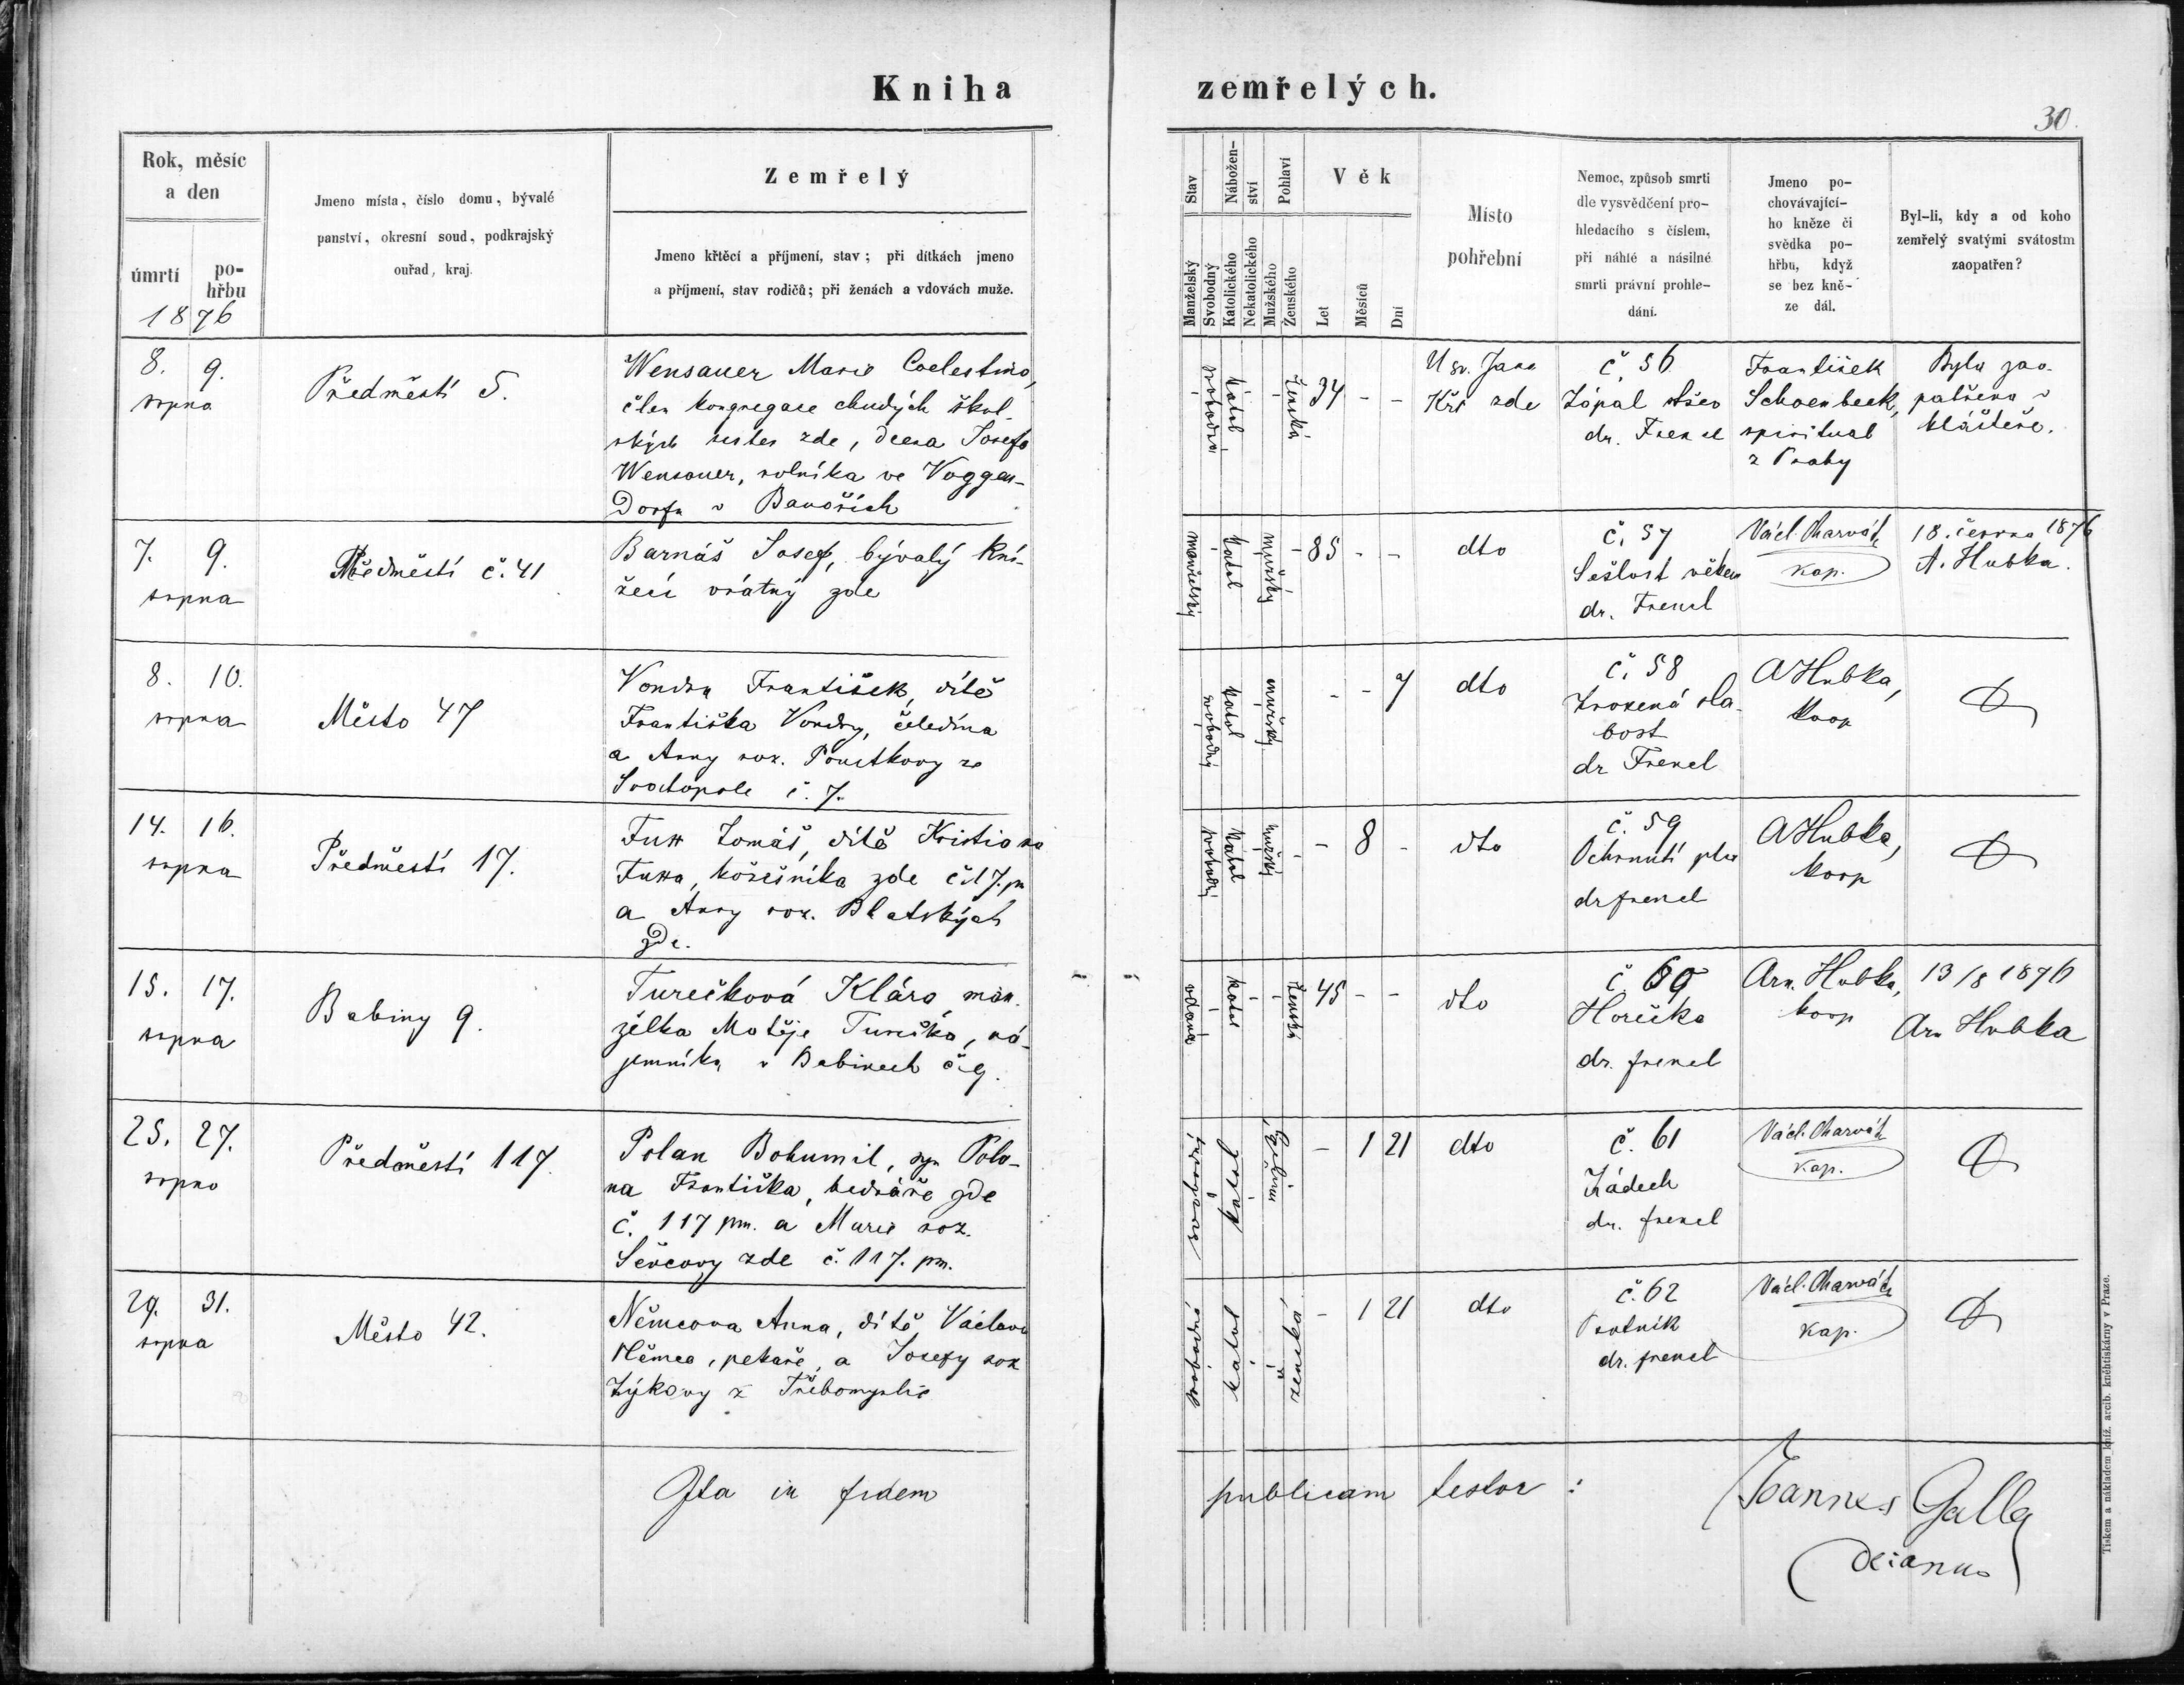 Kniha zemřelých.
30.
Rok, měsíc
a den
úmrtí
po-
hřbu
1876
Jmeno místa, číslo domu, bývalé
panství, okresní soud, podkrajský
ouřad, kraj.
Zemřelý
Jmeno křtěcí a příjmení, stav; při dítkách jmeno
a příjmení, stav rodičů; při ženách a vdovách muže.
Stav
Manželský
Svobodný
Nábožen-
ství
Katolického
Nekatolického
Pohlaví
Mužského
Ženského
Věk
Let
Měsíců
Dní
Místo
pohřební
Nemoc, způsob smrti
dle vysvědčení pro-
hledacího s číslem,
při náhlé a násilné
smrti právní prohle-
dání.
Jmeno po-
chovávající-
ho kněze či
svědka po-
hřbu, když
se bez kně-
ze dál.
Byl-li, kdy a od koho
zemřelý svatými svátostm
zaopatřen?
8. 9.
srpna
Předměstí 5.
Wensauer Marie Coelestina,
člen kongregace chudých škol-
ských sester zde, dcera Josefa
Wensauer, rolníka ve Voggen-
Dorfu v Bavořích
svobodná
katol
ženská
34 - -
U sv. Jana
Křt zde
č. 56
Zápal střev
dr. Frencl
František
Schoenbeck,
spiritual
z Prahy
Byla zao-
patřena v
klášteře.
7. 9.
srpna
Předměstí č. 41
Barnáš Josef, bývalý kní-
žecí vrátný zde
manželský
katol
mužský
85 - -
dto
č. 57
Sešlost věkem
dr. Frencl
Václ. Charvát,
kap.
18. června 1876
A. Hubka.
8. 10.
srpna
Město 47
Vondra František, dítě
Františka Vondry, čeledína
a Anny roz. ze
č. 7.
svobodný
katol
mužský
- - 7
dto
č. 58
Zrozená sla-
bost
dr Frencl
A Hubka,
koop
14. 16.
srpna
Předměstí 17.
Tomáš, dítě Kristiana
kožešníka zde č. 17. pm
a Anny roz. Blatských
zde.
svobodný
katol
mužský
- 8 -
dto
č. 59
Ochrnutí plic
dr frencl
A Hubka,
koop
15. 17.
srpna
Babiny 9.
Turečková Klára, man-
želka Matěje Turečka, ná-
jemníka v Babinech č 9.
vdaná
katol
ženská
45 - -
dto
č. 60
Horečka
dr. frencl
Arn. Hubka,
koop
13/8 1876
Arn Hubka
25. 27.
srpna
Předměstí 117.
Polan Bohumil, syn Pola-
na Františka, bednáře zde
č. 117 pm. a Marie roz.
Ševcovy zde č. 117. pm.
katol
- 1 21
dto
č. 61
Zádech
dr. frencl
Václ. Charvát
kap.
29. 31.
srpna
Město 42.
Němcova Anna, dítě Václava
Němca, pekaře, a Josefy roz
Zýkovy z Třebomyslic
svobodná
katol
ženská
- 1 21
dto
č. 62
Psotník
dr. frencl
Václ. Charvát
kap.
Ita in fidem publicam testor:
Joannes Galla
decanus
Tiskem a nákladem kníž. arcib. kněhtiskárny v Praze.